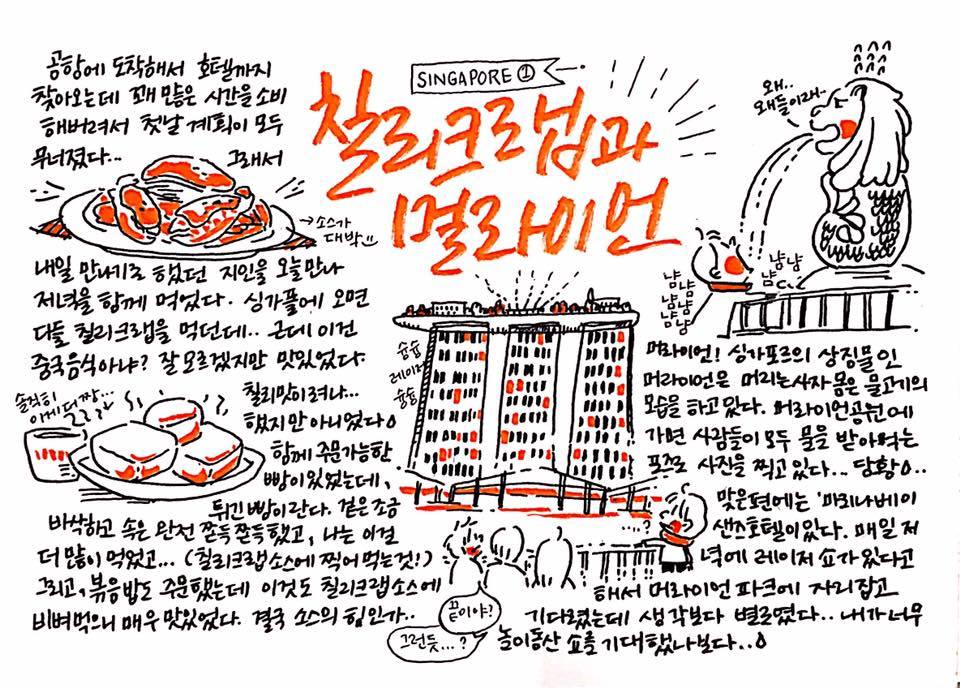 SINGAPORE ①
칠리크랩과
멀라이언
공항에 도착해서 호텔까지
찾아오는데 꽤 많은 시간을 소비
해버려서 첫날 계획이 모두
무너졌다... 그래서
→소스가
대박
내일 만나기로 했던 지인을 오늘 만나
저녁을 함께 먹었다. 싱가폴에 오면
다들 칠리크랩을 먹던데.. 근데 이건
중국음식아냐? 잘 모르겠지만 맛있었다
칠리맛이려나...
했지만 아니었다
솔직히
이게 더 짱...
함께 주문가능한
빵이 있었는데,
튀긴 빵이란다. 겉은 조금
바삭하고 속은 완전 쫀득쫀득했고, 나는 이걸
더 많이 먹었고... (칠리크랩소스에 찍어 먹는것!)
그리고, 볶음밥도 주문했는데 이것도 칠리크랩소스에
비벼먹으니 매우 맛있었다. 결국 소스의 힘인가..
슝슝
레이저
슝슝
끝이야?
그런듯...?
왜..
왜들이래~
냠
냠냠
냠
냠냠
냠냠
냠
냠냠
머라이언! 싱가포르의 상징물인
머라이언은 머리는 사자 몸은 물고기의
모습을 하고 있다. 머라이언공원에
가면 사람들이 모두 물을 받아먹는
포즈로 사진을 찍고 있다... 당황..
맞은편에는 '마리나베이
샌즈호텔이 있다. 매일 저
녁에 레이저 쇼가 있다고
해서 머라이언 파크에 자리잡고
기다렸는데 생각보다 별로였다.. 내가 너무
놀이동산 쇼를 기대했나보다..